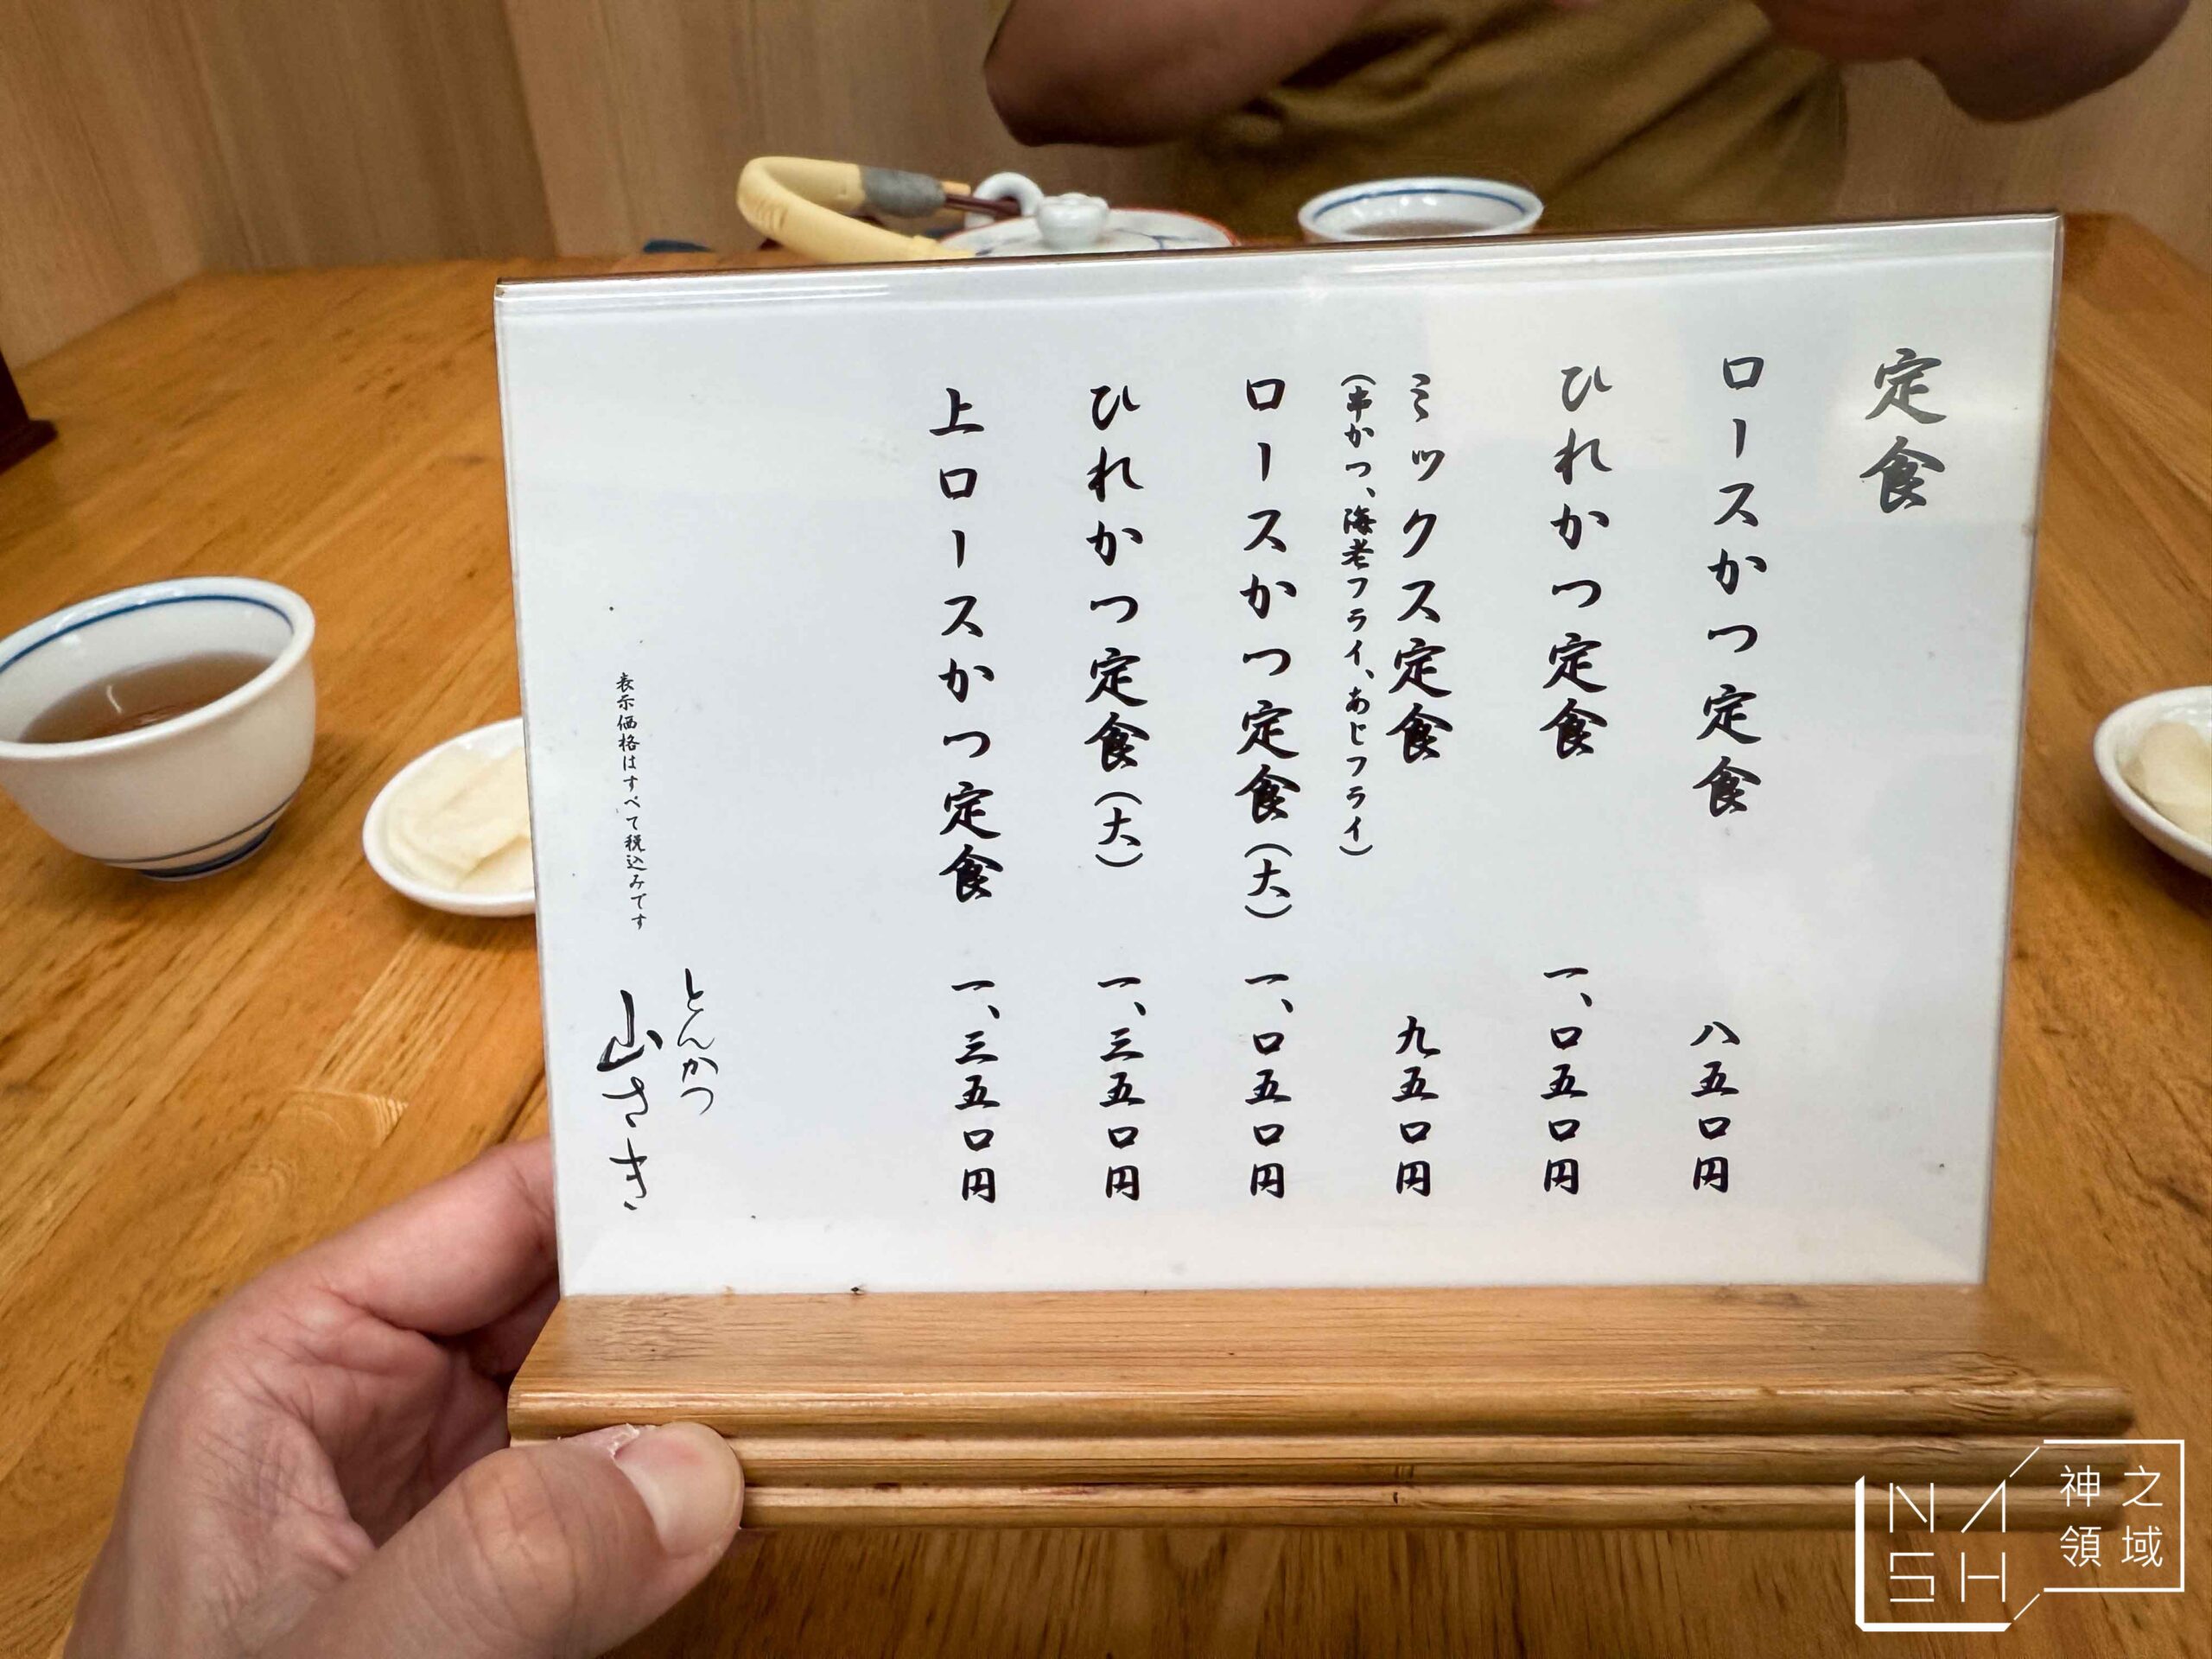 定食
ロースかつ定食 八五〇円
ひれかつ定食 一、〇五〇円
ミックス定食 九五〇円
(串かつ、海老フライ、あじフライ)
ロースかつ定食(大) 一、〇五〇円
ひれかつ定食(大) 一、三五〇円
上ロースかつ定食 一、三五〇円
とんかつ
山さき
表示価格はすべて税込みです
NASH
神之領域